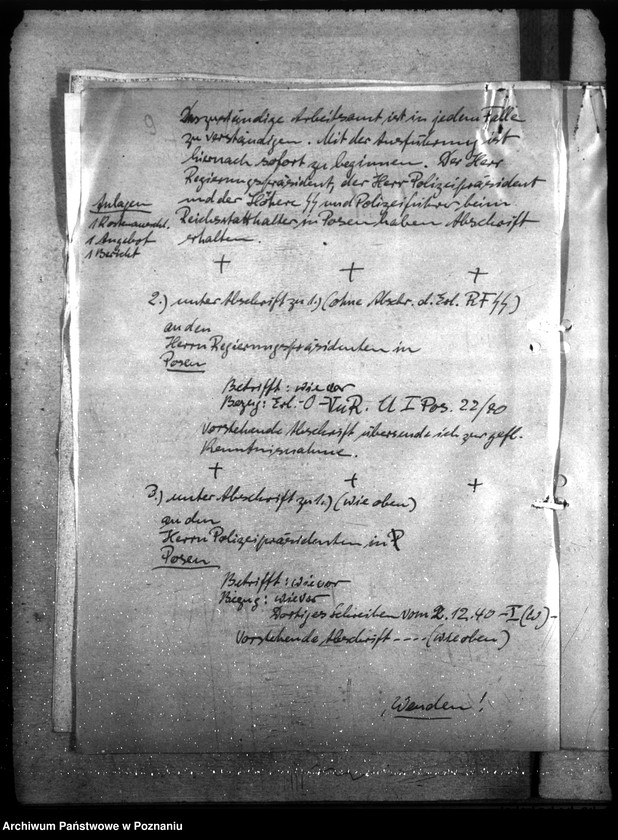 9
Das zuständige Arbeitsamt ist in jedem Falle
zu verständigen. Mit der Ausführung ist
hiernach sofort zu beginnen. Der Herr
Regierungspräsident, der Herr Polizeipräsident
und der Höhere SS und Polizeiführer beim
Reichsstatthalter in Posen haben Abschrift
erhalten.
Anlagen
1 Kostenanschl.
1 Angebot
1 Bericht
+ + +
2.) unter Abschrift zu 1.) (ohne Abschr. d. Erl. RFSS)
an den
Herrn Regierungspräsidenten in
Posen
Betrifft: wie vor
Bezug: Erl. - O - VuR. U I Pos. 22/80
Vorstehende Abschrift übersende ich zur gefl.
Kenntnisnahme.
+ + +
3.) unter Abschrift zu 1.) (wie oben)
an den
Herrn Polizeipräsidenten in
Posen
Betrifft: wie vor
Bezug: wie vor
Dortiges Schreiben vom 2.12.40 - I (W) -
Vorstehende Abschrift ---- (wie oben)
Wenden!
Archiwum Państwowe w Poznaniu